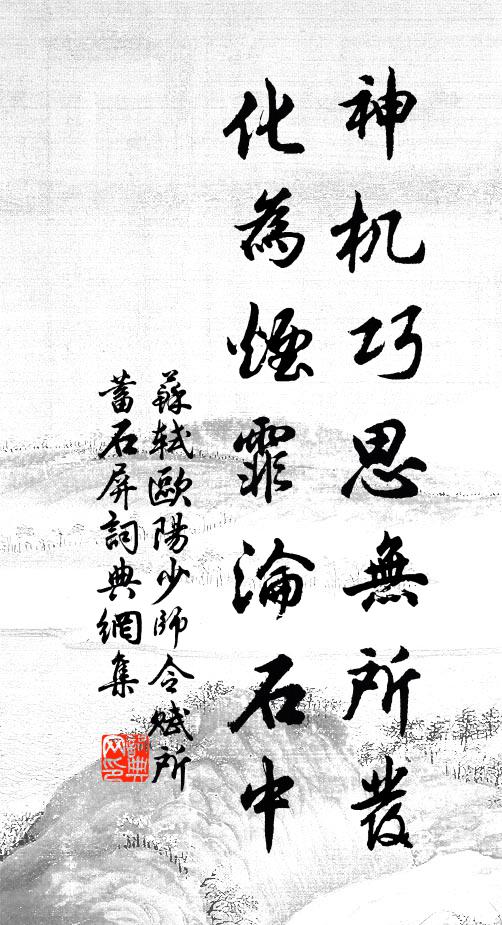 神机巧思無所發
化為煙霏淪石中
蘇軾歐陽少師令賦所
蓄石屏詞典網集